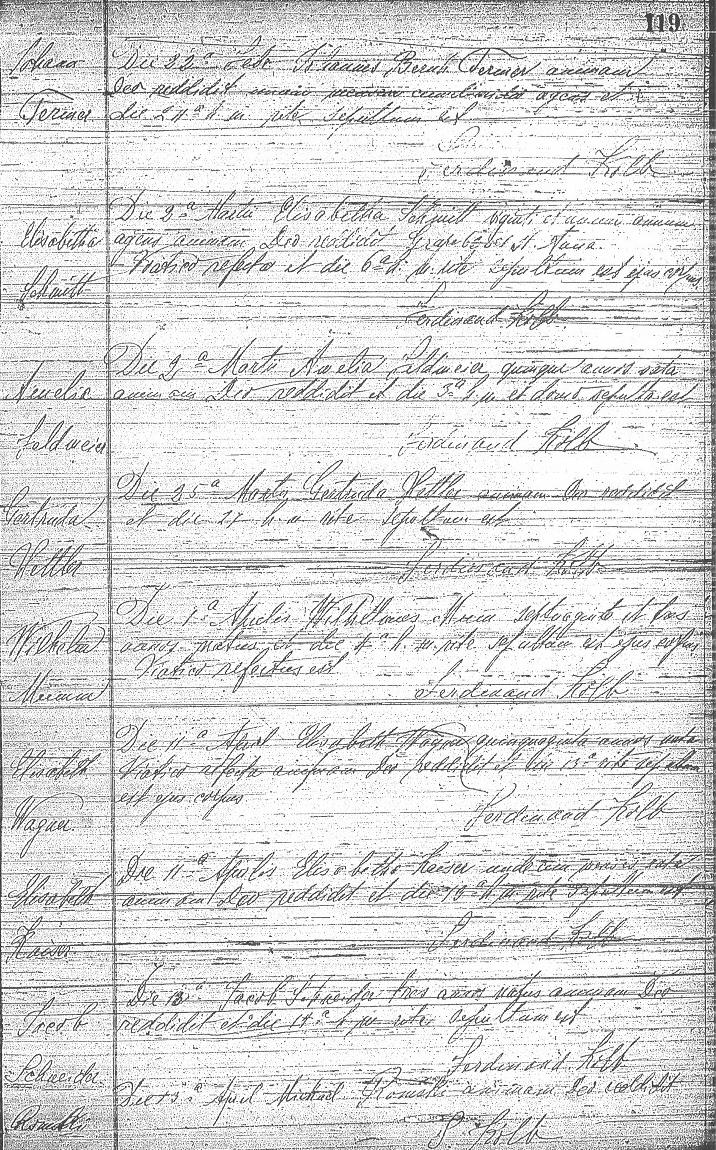 119
Johann Die 22ª Febr Johannes Bernh Termer animam
Deo reddidit unam agens et
Termer die 24ª h m rite sepultum est
Ferdinand Kolb
Die 2ª Martii Elisabetha Schmitt annum
Elisabetha agens animam Deo reddidit
Viatico refecta et die 6ª h. m. rite sepultum est ejus corpus
Schmitt
Ferdinand Kolb
Die 2ª Martii Amelia Feldmeier quinque annos nata
Amelia animam Deo reddidit et die 3ª h. m. et sepulta est
Feldmeier Ferdinand Kolb
Die 25ª Martii Gertruda Vettler animam Deo reddidit
Gertruda et die 27 h m rite sepultum est
Vettler Ferdinand Kolb
Die 1ª Aprilis Wilhelmus Mumm septuaginta et tres
Wilhelm annos natus et die 4ª h. m. rite sepultum est ejus corpus
Viatico refectus est
Mumm Ferdinand Kolb
Die 11ª April Elisabeth Wagner quinquaginta annos nata
Elisabeth Viatico refecta animam Deo reddidit et die 13ª rite sepultum
est ejus corpus
Wagner. Ferdinand Kolb
Die 11ª Aprilis Elisabetha Kaiser undecim menses nata
Elisabeth animam Deo reddidit et die 13ª h. m. rite sepultum est
Kaiser Ferdinand Kolb
Die 13ª Jacob Schneider tres annos natus animam Deo
Jacob reddidit et die 14ª h m rite sepultum est
Schneider Ferdinand Kolb
Die 13ª April Michael animam Deo reddidit
F. Kolb